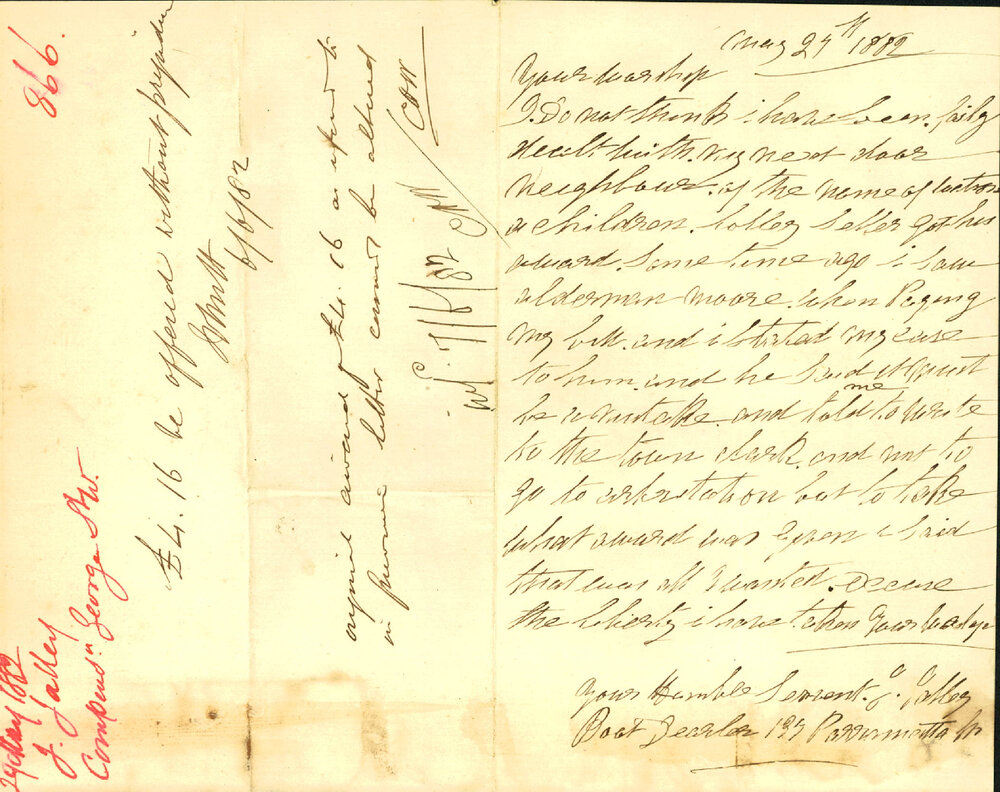 May 29th 1882
Your Worship
I Do not think i have been fairly
dealt with. my next door
neighbour. of the name of
a children. lolley seller got his
award some time ago i saw
alderman Moore. when Paying
my bill. and i stated my case
to him. and he said it must
be a mistake. and told me to write
to the town clark. and not to
go to arbitration but to take
what award was given i said
that was all I wanted. Excuse
the liberty i have taken your Worship
Your Humble Servent. J. Jolley
Boot Dealer 137 Parramatta St
866.
29 May 1882
J. Jolley
Compensn. George St W.
£4. 16 be offered without prejudice
6/6/82
original award of £4. 16 as referred to
in previous letter cannot be altered
1/6/82